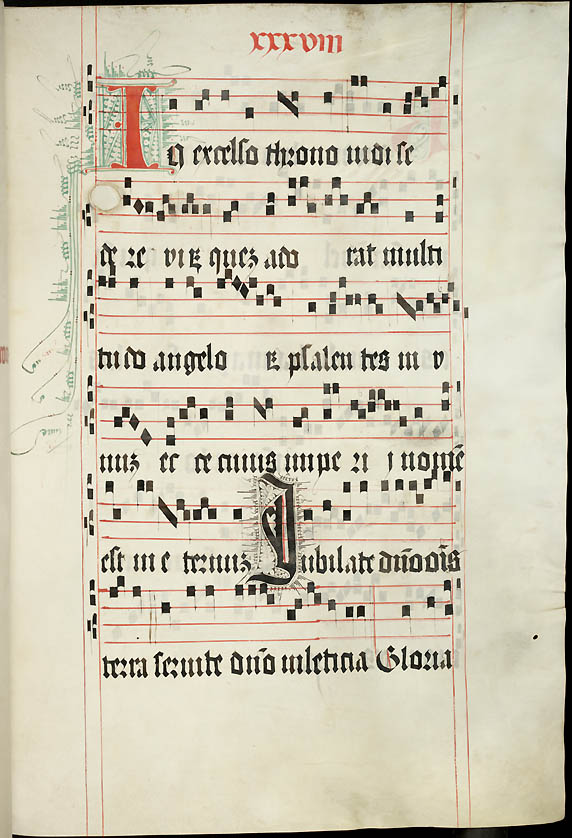 xxxviii
In excelso throno uidi se
de re viꝝ quez ado rat multi
tudo angeloꝝ psalen tes in v
nuz ec ce cuius impe ri i nomē
est in e ternuz Jubilate dño oīs
terra seruite dño in leticia Gloria